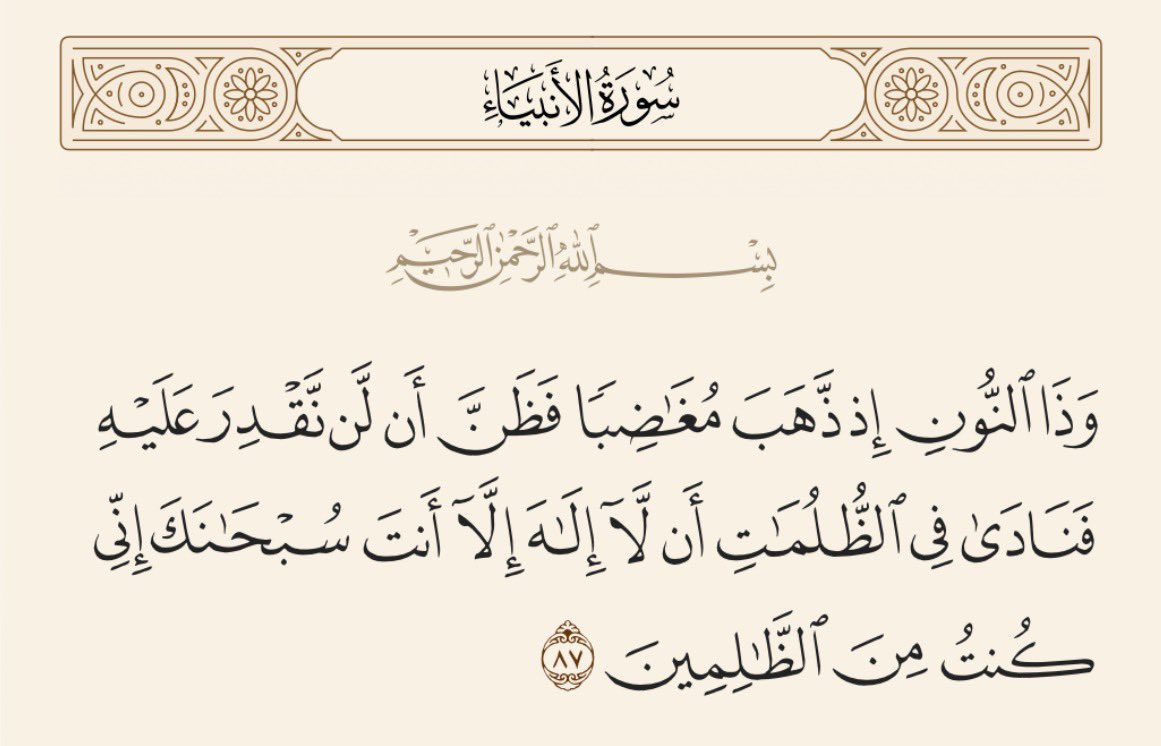 سُورَةُ الأَنبِيَاءِ
بِسْمِ ٱللَّهِ ٱلرَّحْمَٰنِ ٱلرَّحِيمِ
وَذَا ٱلنُّونِ إِذ ذَّهَبَ مُغَٰضِبٗا فَظَنَّ أَن لَّن نَّقۡدِرَ عَلَيۡهِ
فَنَادَىٰ فِي ٱلظُّلُمَٰتِ أَن لَّآ إِلَٰهَ إِلَّآ أَنتَ سُبۡحَٰنَكَ إِنِّي
كُنتُ مِنَ ٱلظَّٰلِمِينَ ٨٧